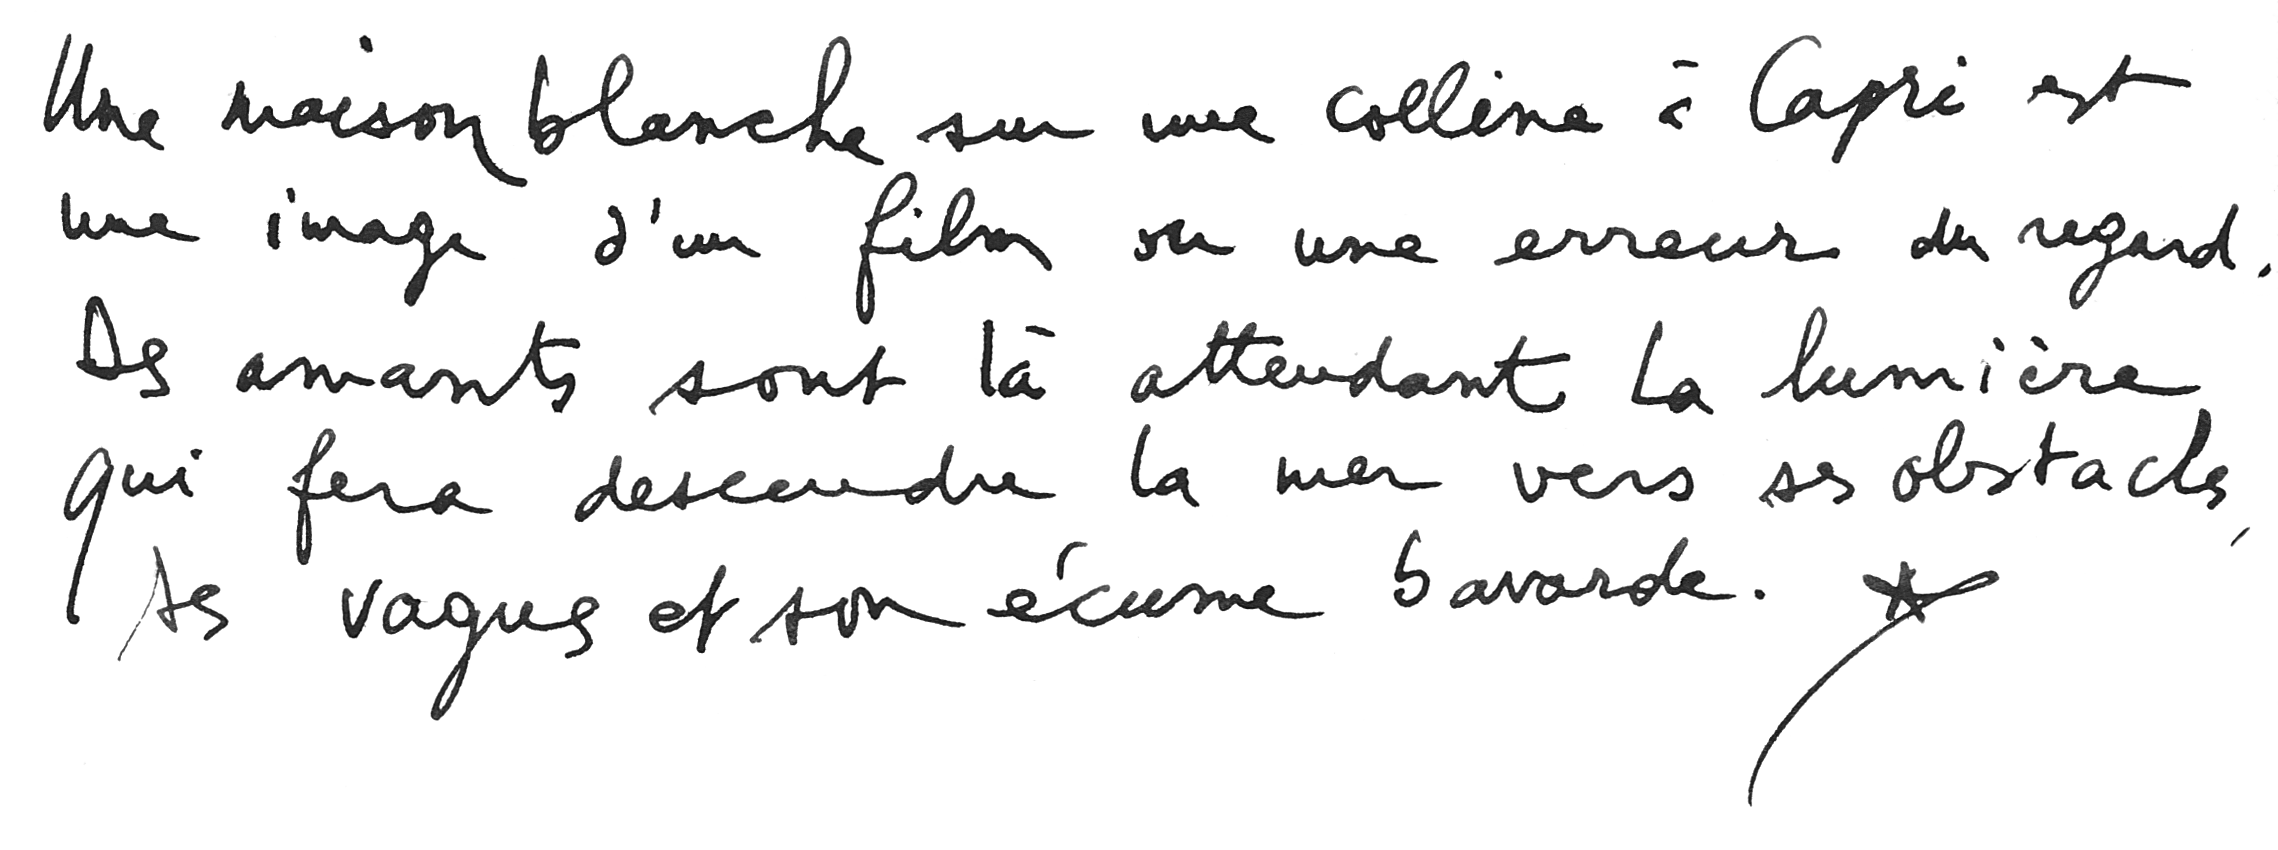 Une maison blanche sur une colline à Capri est
une image d'un film ou une erreur du regard.
Des amants sont là attendant la lumière
qui fera descendre la mer vers ses obstacles,
ses vagues et son écume bavarde. *